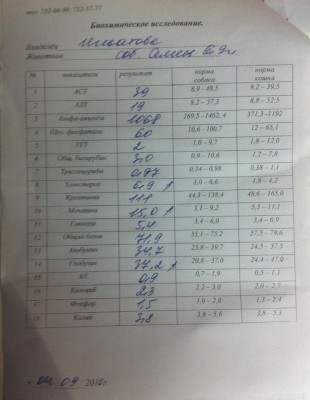 тел. 752-66-66 752-57-77
Биохимическое исследование.
Владелец Игнатова
Животное соб. 9л.
№ показатели результат норма собака норма кошка
1 АСТ 39 8,9 – 48,5 9,2 – 39,5
2 АЛТ 19 8,2 – 57,3 8,8 – 52,5
3 Альфа-амилаза 1068 269,5-1462,4 371,3 -1192
4 Щел. фосфатаза 60 10,6 – 100,7 12 – 65,1
5 ГГТ 2 1,0 – 9,7 1,8 – 12,0
6 Общ. билирубин 3,0 0,9 – 10,6 1,2 – 7,9
7 Триглицериды 0,97 0,24 – 0,98 0,38 – 1,1
8 Холестерин 6,9 ↑ 3,0 – 6,6 1,8 – 4,2
9 Креатинин 111 44,3 – 138,4 48,6 – 165,0
10 Мочевина 15,0 ↑ 3,1 – 9,2 5,5 – 11,1
11 Глюкоза 5,4 3,4 – 6,0 3,4 – 6,9
12 Общий белок 71,9 55,1 – 75,2 57,5 – 79,6
13 Альбумин 34,7 25,8 – 39,7 24,5 – 37,5
14 Глобулин 37,2 ↑ 20,8 – 37,0 24,4 – 47,0
15 А/Г 0,9 0,7 – 1,9 0,5 – 1,1
16 Кальций 2,3 2,2 – 3,0 2,0 – 2,7
17 Фосфор 1,5 1,0 – 2,0 1,3 – 2,4
18 Калий 3,8 3,8 – 5,6 3,8 – 5,3
« 04 09